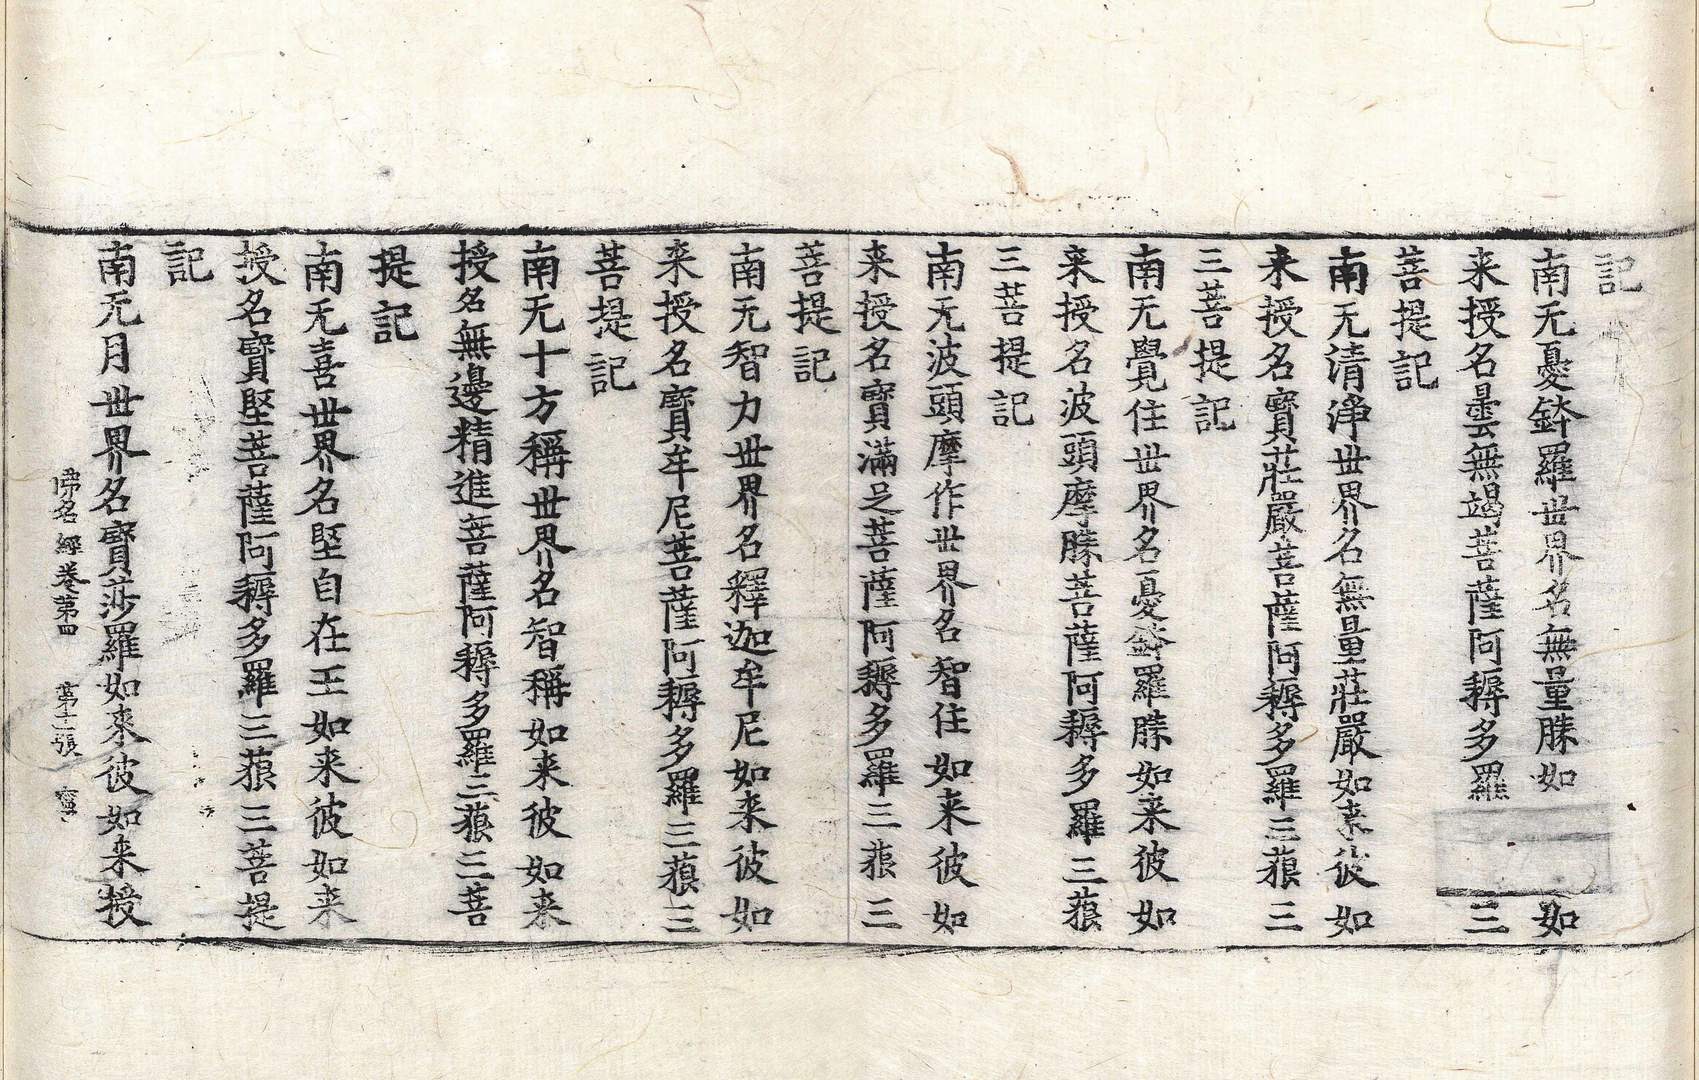 記
南无憂鉢羅世界名無量勝如如
来授名曇無竭菩薩阿耨多羅三
菩提記
南无清淨世界名無量莊嚴如来彼如
来授名寳莊嚴菩薩阿耨多羅三藐三
三菩提記
南无覺住世界名憂鉢羅勝如来彼如
来授名波頭摩勝菩薩阿耨多羅三藐
三菩提記
南无波頭摩作世界名智住如来彼如
来授名寳滿足菩薩阿耨多羅三藐三
菩提記
南无智力世界名釋迦牟尼如来彼如
来授名寳牟尼菩薩阿耨多羅三藐三
菩提記
南无十方稱世界名智稱如来彼如来
授名無邊精進菩薩阿耨多羅三藐三菩
提記
南无喜世界名堅自在王如来彼如来
授名寳堅菩薩阿耨多羅三藐三菩提
記
南无月世界名寳莎羅如来彼如来授
佛名經卷第四 第十二張